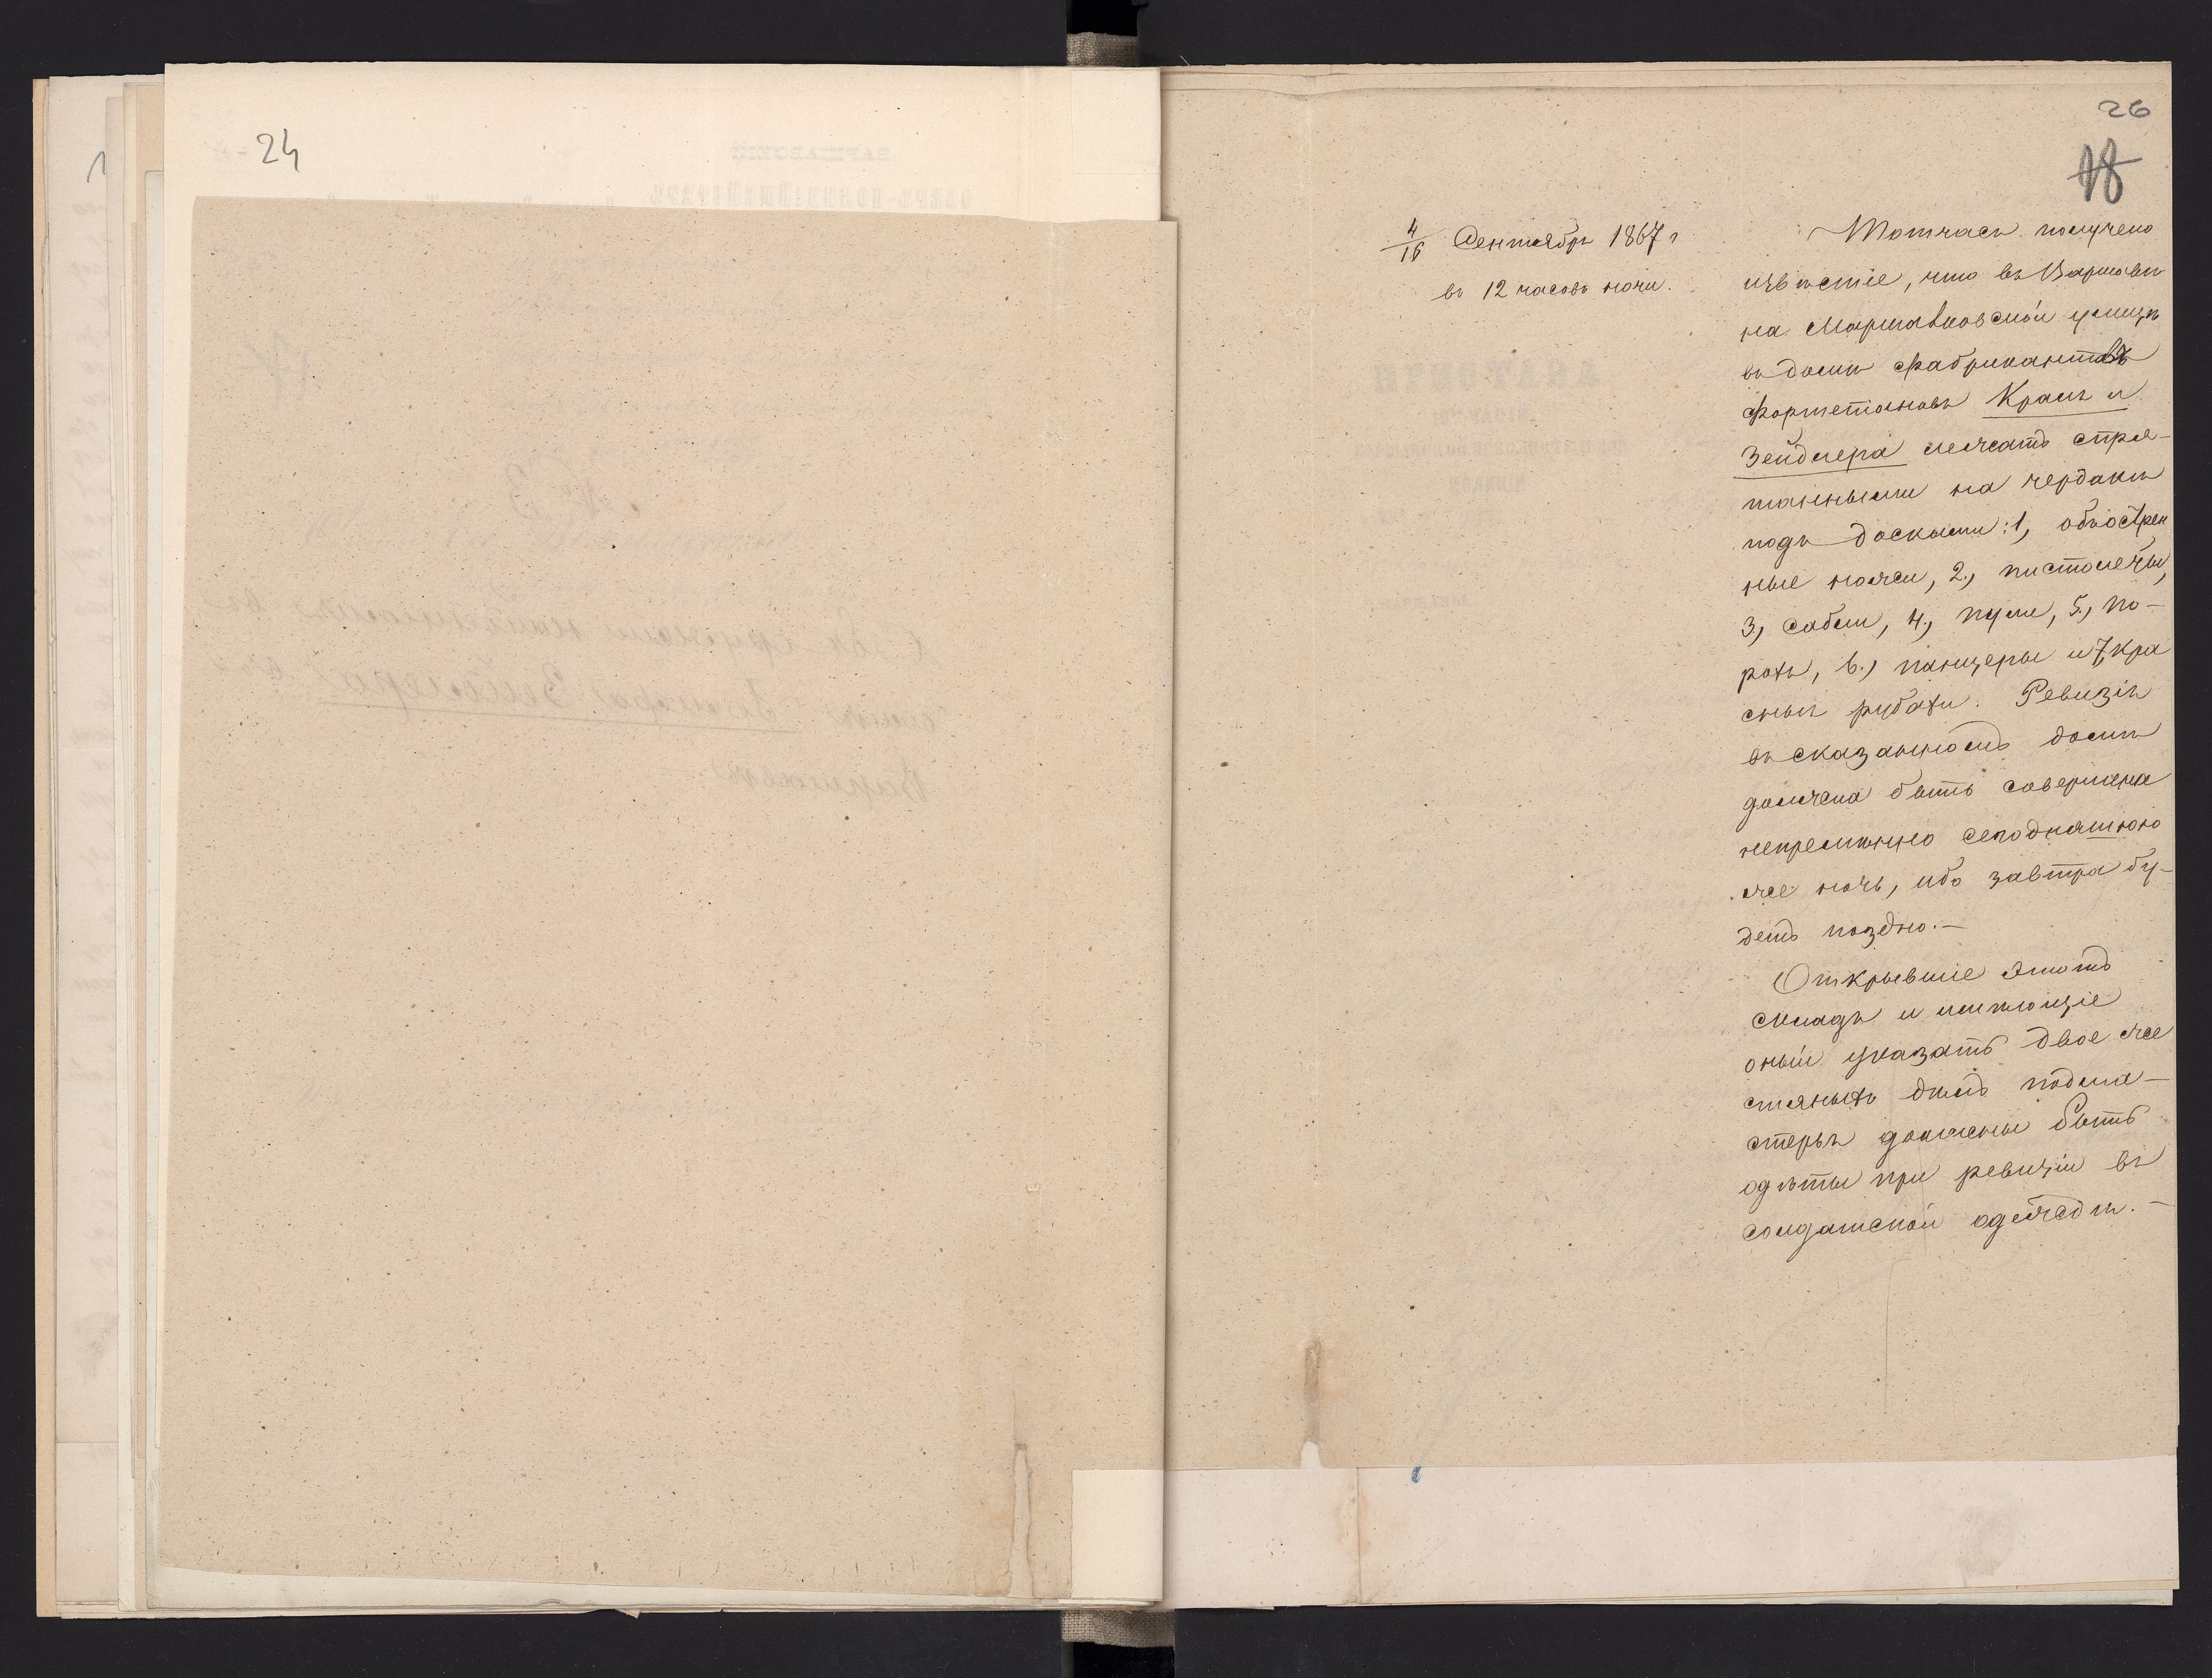 24
26
18
4/16 Сентябрь 1867 г
въ 12 часовъ ночи.
Тотчасъ получено
извѣстіе, что въ Варшавѣ
на Маршалковской улицѣ
въ домѣ фабрикантовъ
фортепіановъ Краль и
Зейдлера лежатъ спря-
танными на чердакѣ
подъ досками: 1, обьострен
ные ножи, 2, пистолеты,
3, сабли, 4, пули, 5, по-
рохъ, 6, панцеры и 7, кра
сныѣ рубахи. Ревизія
въ сказанномъ домѣ
должена быть совершена
непремѣнно сегодняшнюю
же ночь, ибо завтра бу-
детъ поздно.—
Открывшіе этотъ
складъ и имѣющіе
оный указать двое же
стяныхъ дѣлъ подма-
стерьѣ должены быть
одѣты при ревизіи въ
солдатской одеждѣ.—